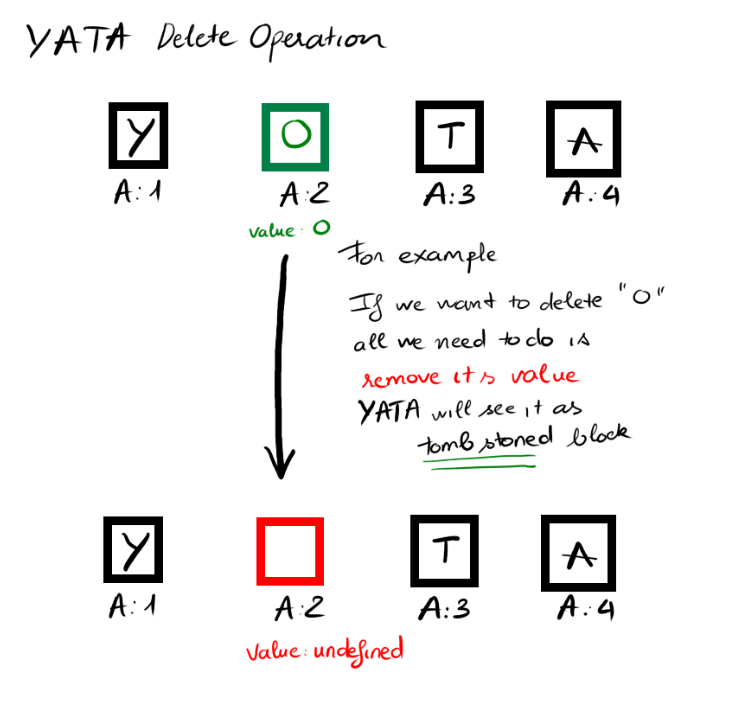 YATA Delete Operation
Y O T A
A:1 A:2 A:3 A:4
value: O
For example
If we want to delete "O"
all we need to do is
remove its value
YATA will see it as
tombstoned block
Y T A
A:1 A:2 A:3 A:4
Value: undefined